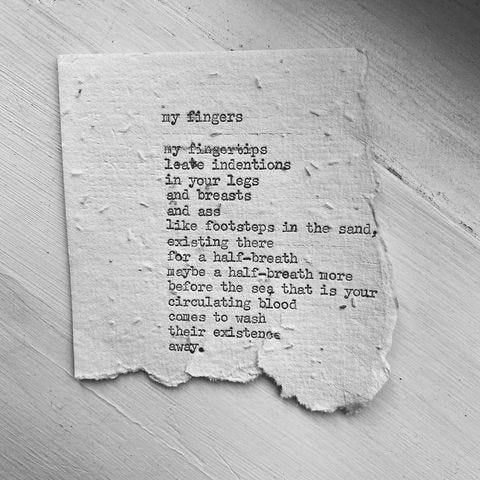 my fingers
my fingertips
leave indentions
in your legs
and breasts
and ass
like footsteps in the sand,
existing there
for a half-breath
maybe a half-breath more
before the sea that is your
circulating blood
comes to wash
their existence
away.